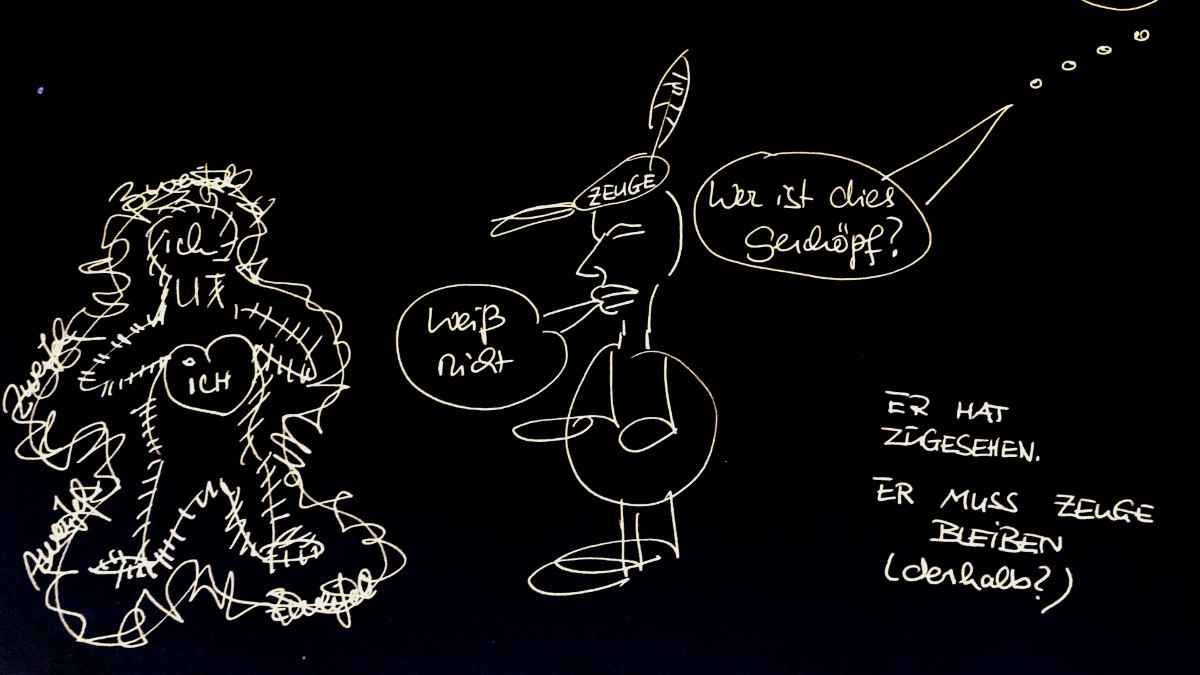 Zweifel
ich
Zweifel
ICH
Zweifel
Zweifel
ZEUGE
weiß
nicht
Wer ist dies
Geschöpf?
ER HAT
ZUGESEHEN.
ER MUSS ZEUGE
BLEIBEN
(deshalb?)